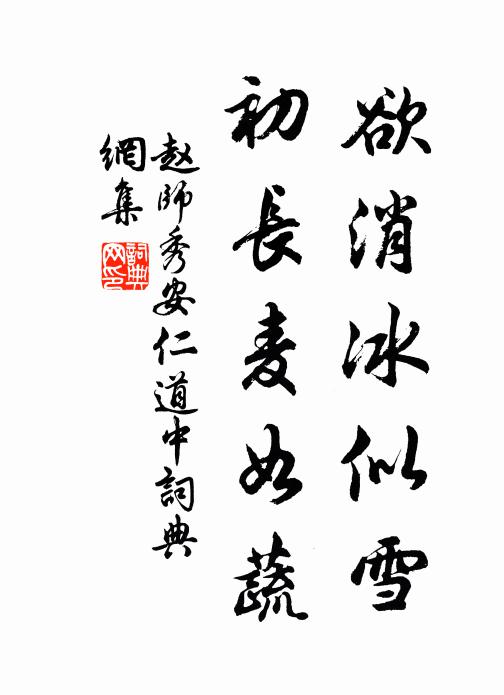 欲消冰似雪
初長麦如蔬
赵師秀安仁道中詞典
網集
詞典
网印